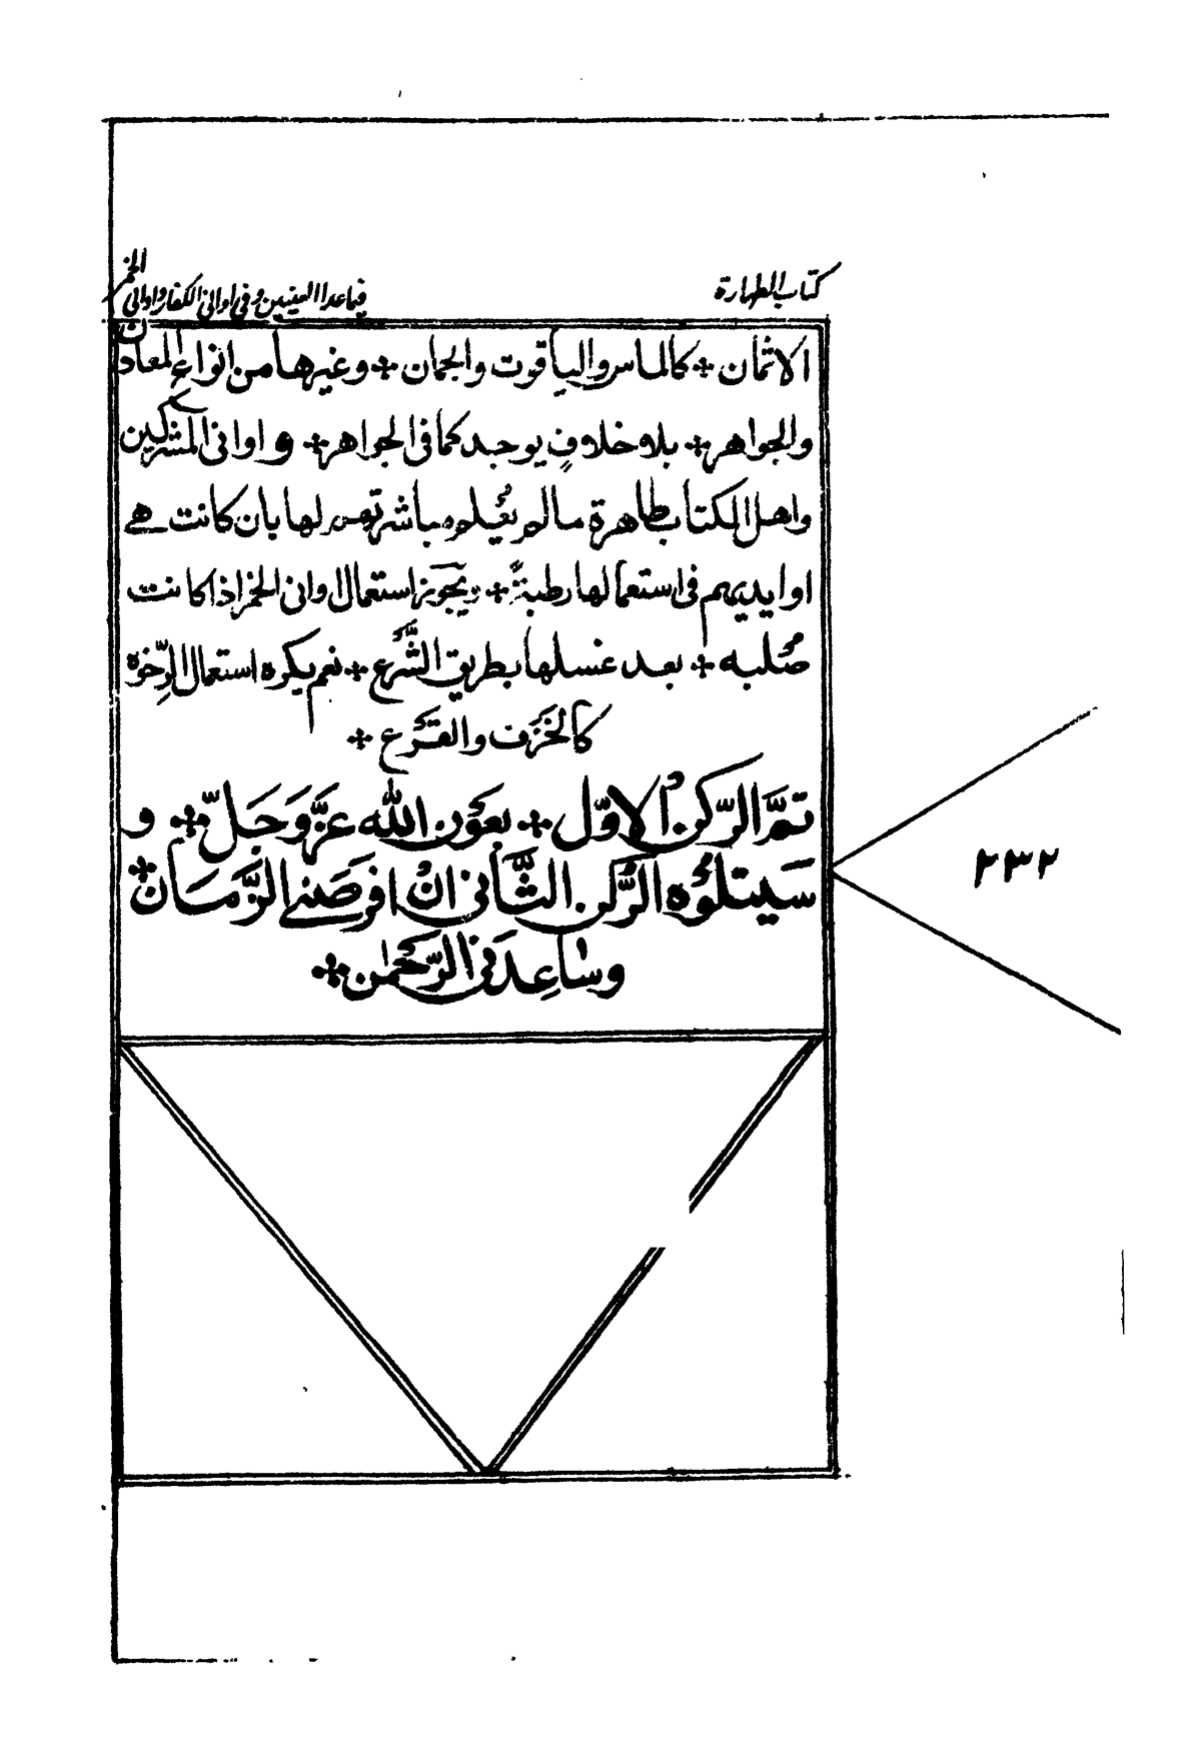 كتاب الطهارة
فيما عدا العينين وفى اوانى الكفار واوانى الخمر
الاثمان ÷ كالماس والياقوت والجمان ÷ وغيرها من انواع المعادن
والجواهر ÷ بلا خلافٍ يوجد كما فى الجواهر ÷ واوانى المشركين
واهل الكتاب طاهرة ما لم يُعلم مباشرتهم لها بان كانت هے
او ايديهم فى استعمالها رطبةً ÷ ويجَوز استعمال اوانى الخمر اذا كانت
صُلبه ÷ بعد غسلها بطريق الشَّرع ÷ نعم يكره استعمال الرِّخوة
كالخَزَف والقَرَع ÷
تمَّ الرّكن الاوّل ÷ بعَون الله عزَّ وَجَلّ ÷ و
سَيتلُوه الرُّكن الثَّانى انْ افرصَنے الزَّمَان ÷
وساعِدَنى الرَّحمٰن ÷
٢٣٢